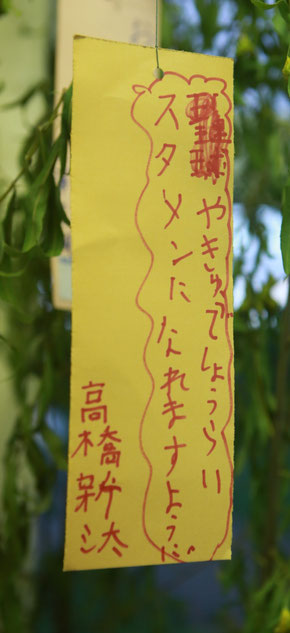 やきゅうでしょうらい
スタメンになれますように
高橋新汰